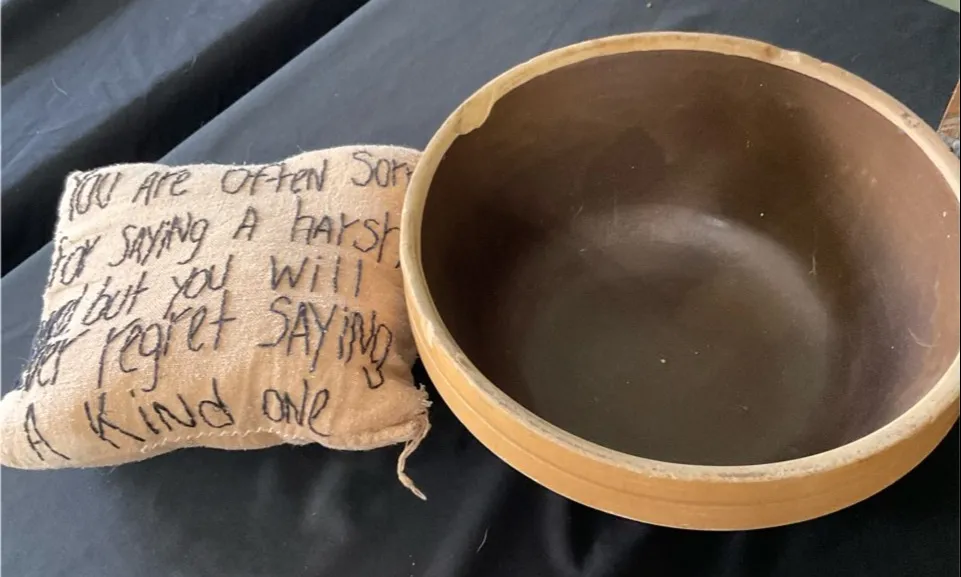 YOU Are OfteN Sorr
for SAYiNg A harsh
but you will
regret SAYiNg
A KiNd oNe